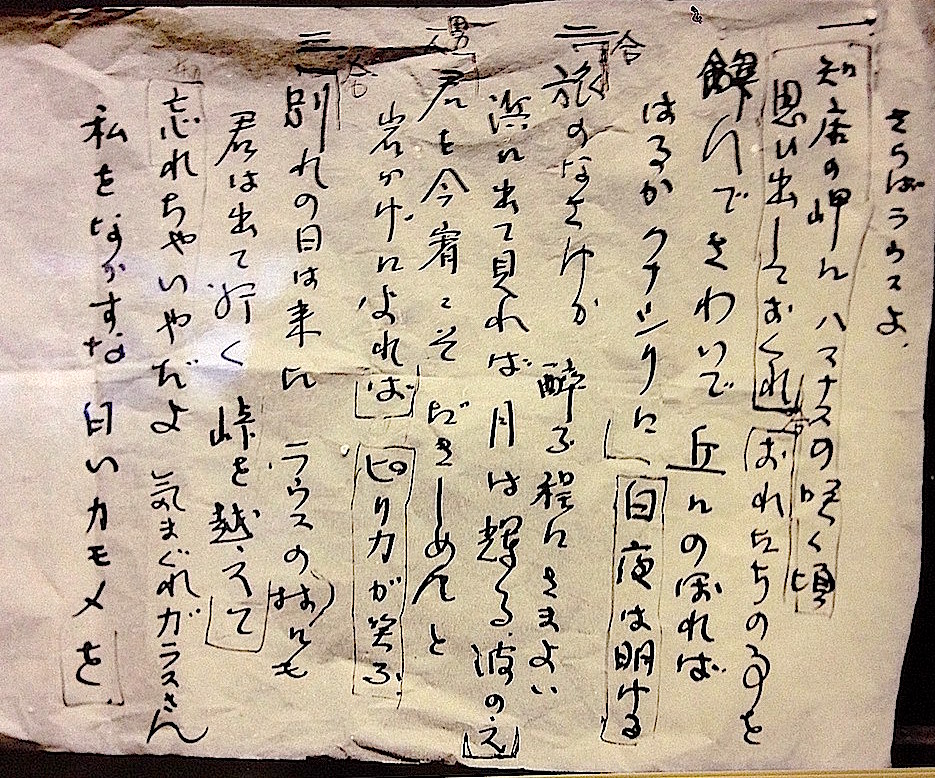 さらばラウスよ
一 知床の岬に ハマナスの咲く頃
思い出しておくれ おれたちの事を
飲んでさわいで 丘にのぼれば
はるかクナシリに 白夜は明ける
二 旅のなさけか 酔う程にさまよい
浜に出て見れば 月は輝る 波の上
男 君を今宵こそ だきしめんと
岩かげによれば ピリカが笑う
三 別れの日は来た ラウスの村にも
君は出て行く 峠を越えて
忘れちゃいやだよ 気まぐれガラスさん
私をなかすな 白いカモメを